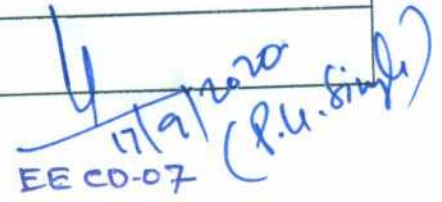 17/9/2020
(P.K. Singh)
EE CD-07